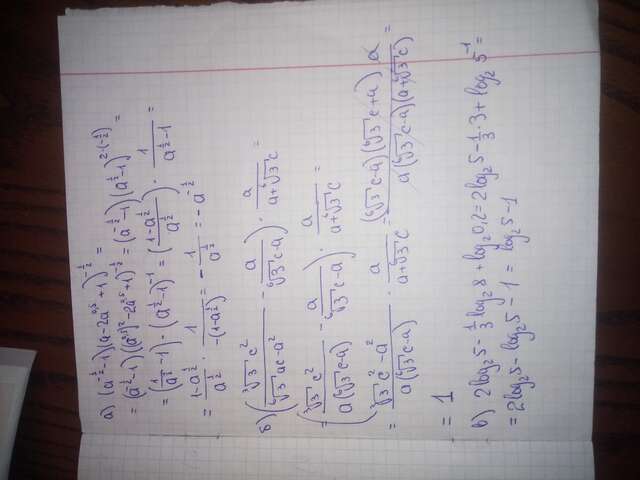 а) (a^{-1/2}-1)(a-2a^{0,5}+1)^{-1/2} =
= (a^{-1/2}-1)((a^{0,5})^2-2a^{0,5}+1)^{-1/2} = (a^{-1/2}-1)(a^{1/2}-1)^{2·(-1/2)} =
= (1/a^{1/2}-1)·(a^{1/2}-1)^{-1} = ((1-a^{1/2})/a^{1/2})·1/(a^{1/2}-1) =
= (1-a^{1/2})/a^{1/2} · 1/(-(1-a^{1/2})) = -1/a^{1/2} = -a^{-1/2}
б) (∛3 c²/(⁶√3 ac-a²) - a/(⁶√3 c-a)) · a/(a+⁶√3 c) =
= (∛3 c²/(a(⁶√3 c-a)) - a/(⁶√3 c-a)) · a/(a+⁶√3 c) =
= (∛3 c²-a²)/(a(⁶√3 c-a)) · a/(a+⁶√3 c) = (⁶√3 c-a)(⁶√3 c+a) a/(a(⁶√3 c-a)(a+⁶√3 c)) =
= 1
в) 2log₂5-1/3 log₂8+log₂0,2 = 2log₂5-1/3·3+log₂5^{-1} =
= 2log₂5-log₂5-1 = log₂5-1